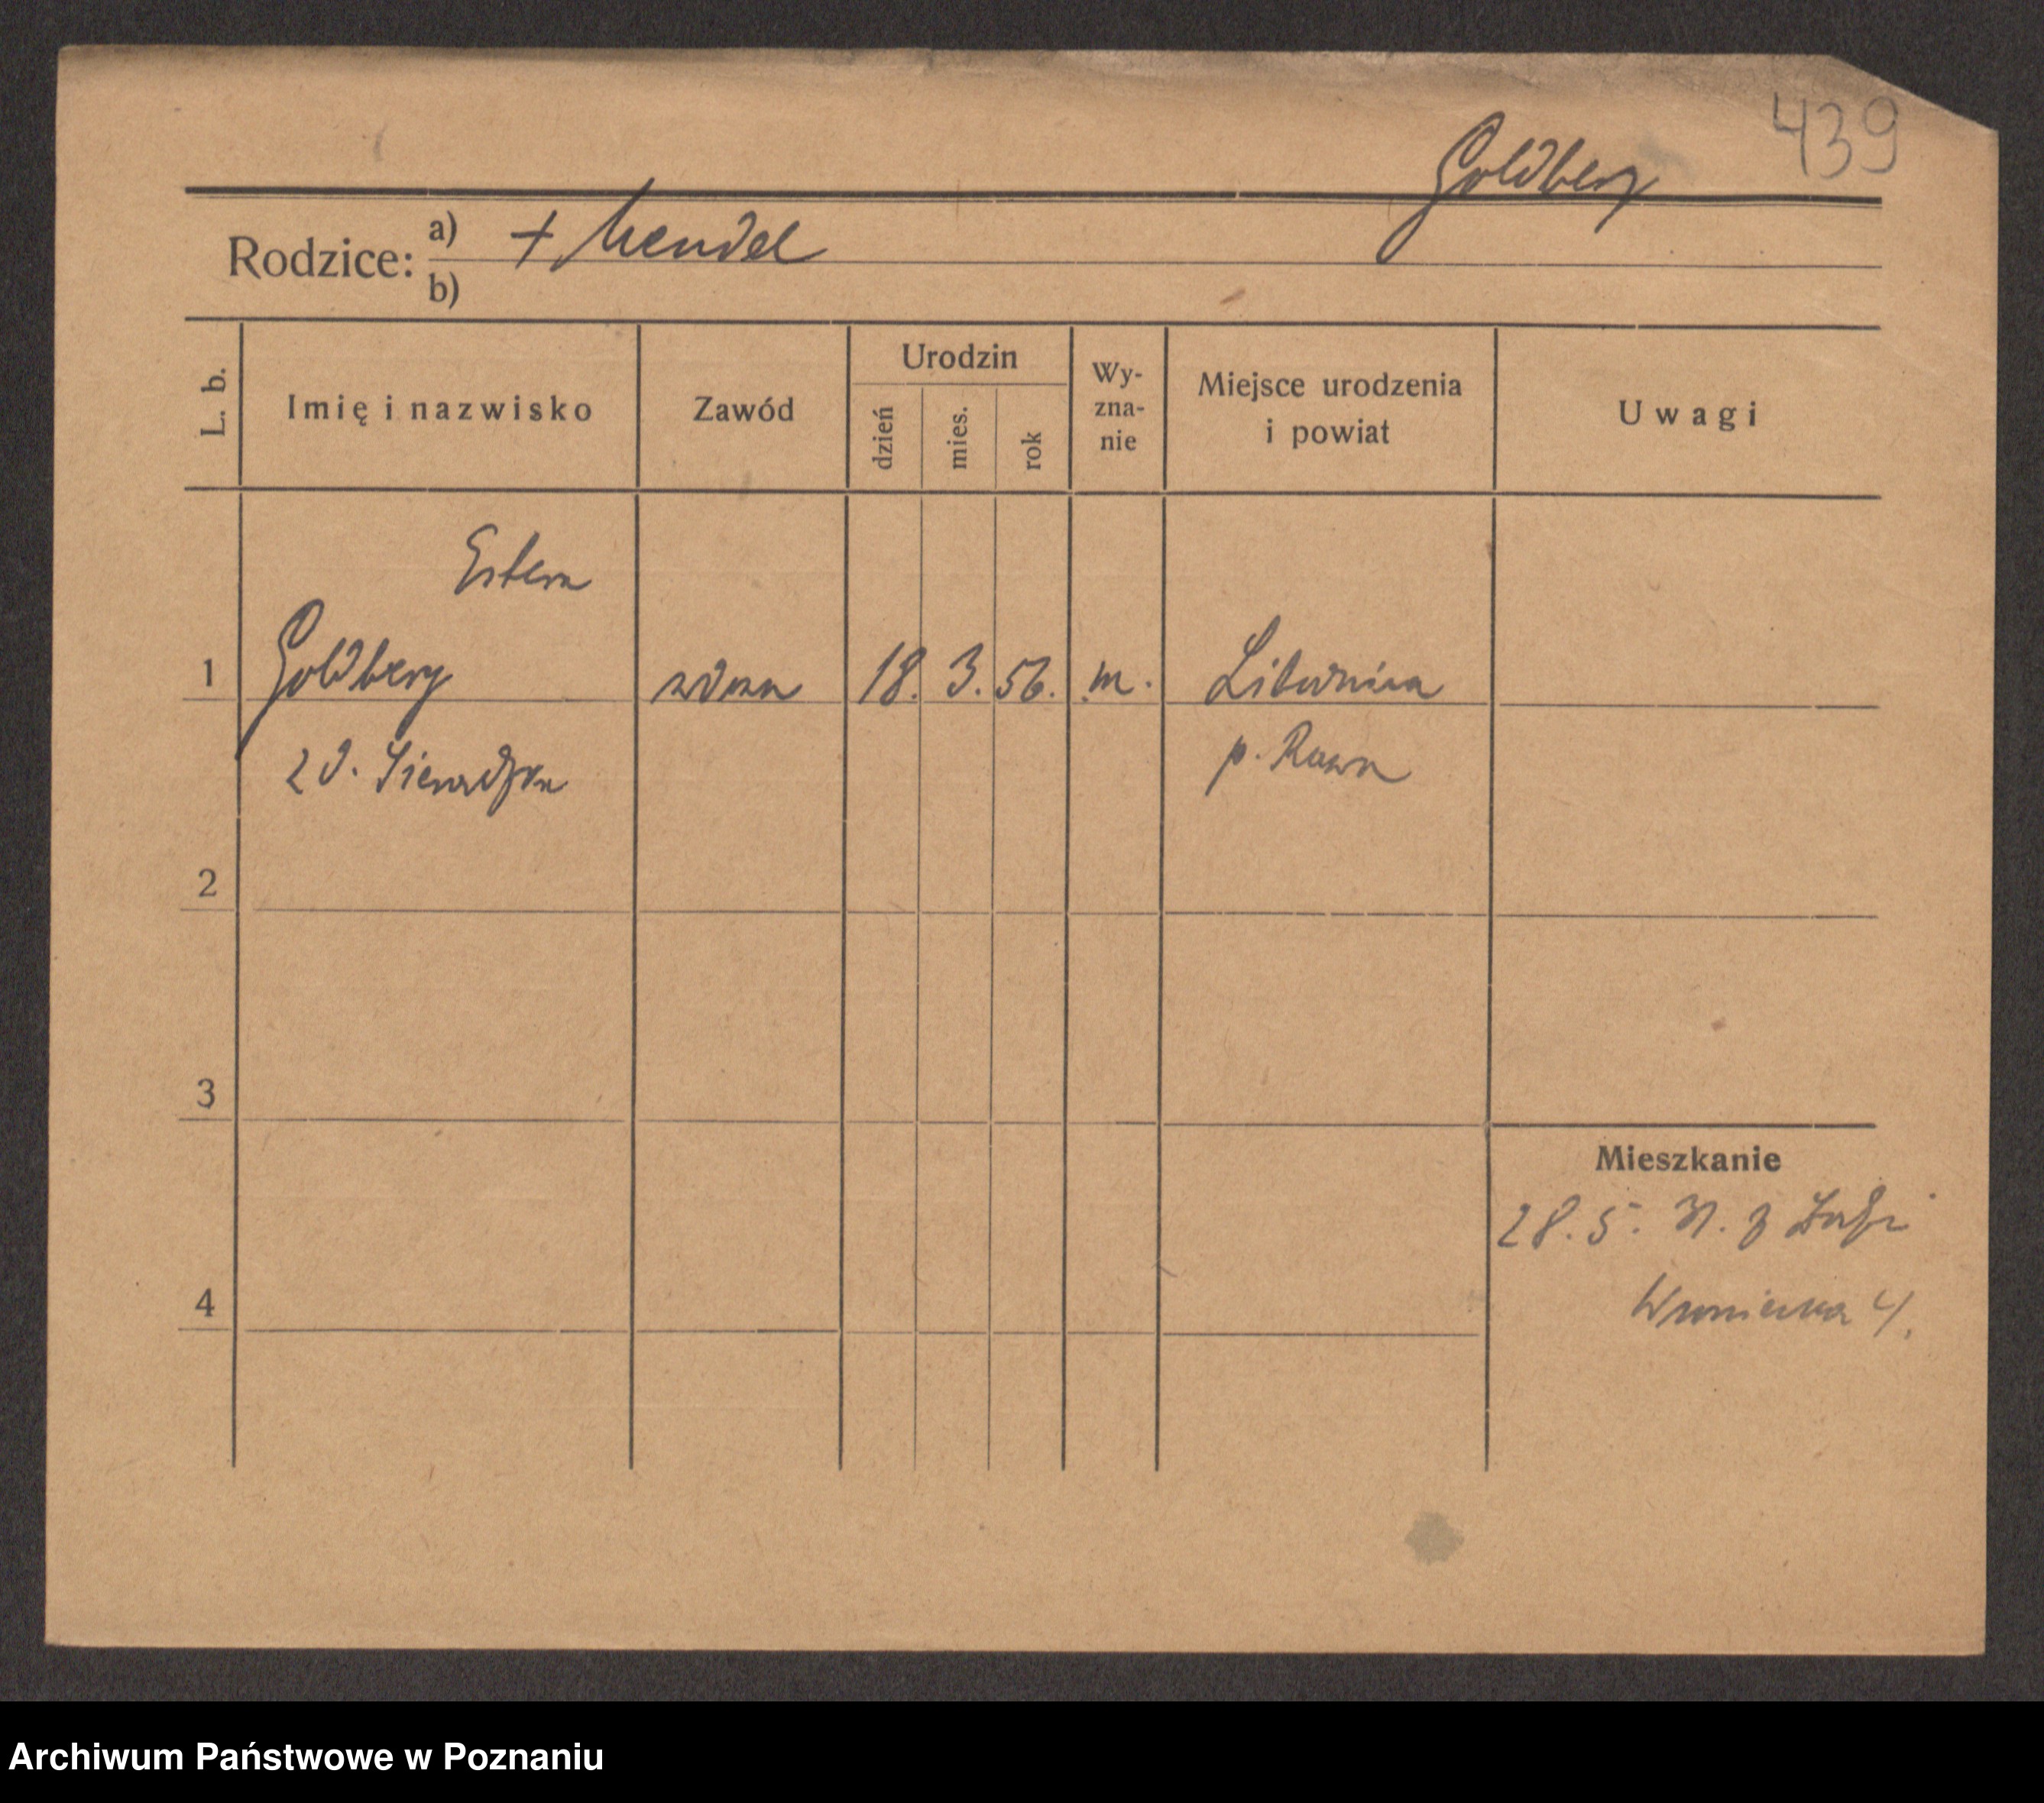 439
Goldberg
Rodzice: a) + Mendel
b)
L. b. Imię i nazwisko Zawód Urodzin dzień mies. rok Wy-zna-nie Miejsce urodzenia i powiat Uwagi
Estera
1 Goldberg wdowa 18. 3. 56. m.
z d. Sieradzka p. Rawa
2
3
Mieszkanie
28. 5. 31. z
4 Wroniecka 4.
Archiwum Państwowe w Poznaniu